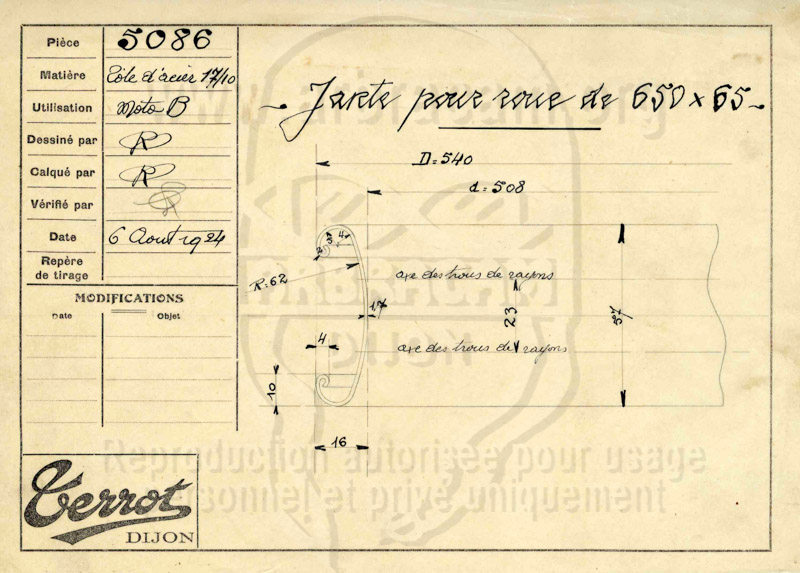 Pièce 5086
Matière Tôle d'acier 17/10
Utilisation Moto B
Dessiné par R
Calqué par R
Vérifié par
Date 6 Aout 1924
Repère
de tirage
MODIFICATIONS
Date Objet
Terrot
DIJON
Jante pour roue de 650 x 65
D = 540
d = 508
4
R = 62
axe des trous de rayons
1,7
23
57
4
axe des trous de rayons
10
16
Reproduction autorisée pour usage
personnel et privé uniquement